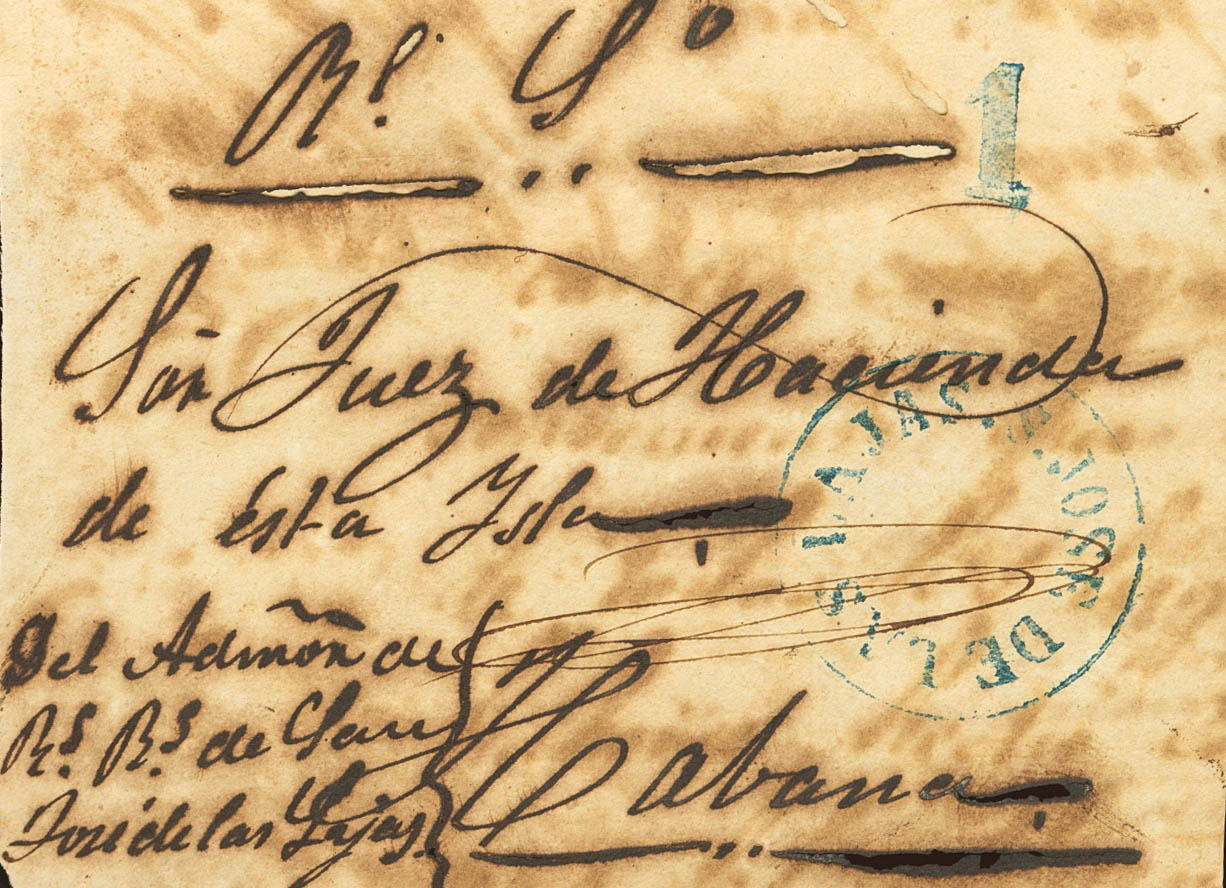 Rl. So
1
Sõr Juez de Hacienda
de ésta Ysla
Del Admõn de
Rs. Rs. de San
José de las Lajas.
Habana
JOSE DE LAS LAJAS.